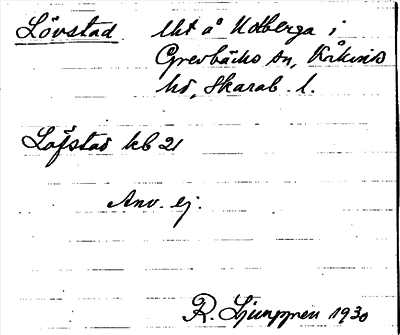 Lövstad. Uht å Kolberga i
Grevbäcks sn, Kåkinds
hd, Skarab. l.
Löfstad kb 21
Anv. ej.
R. Ljunggren 1930